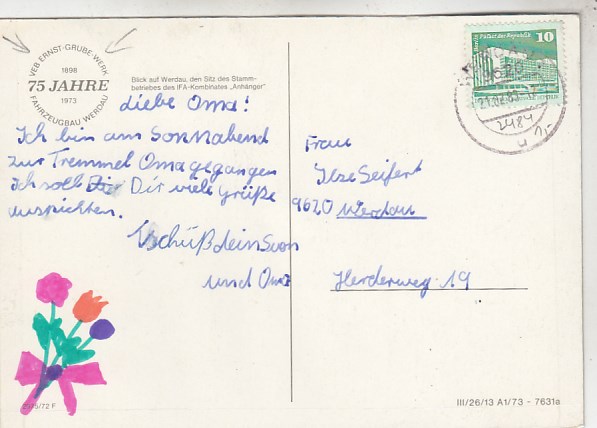 VEB ERNST-GRUBE-WERK
1898
75 JAHRE
1973
FAHRZEUGBAU WERDAU
Blick auf Werdau, den Sitz des Stamm-
betriebes des IFA-Kombinates "Anhänger"
Liebe Oma!
Ich bin am Sonnabend
zur Tremmel Oma gegangen
Ich soll Dir viele grüße
auspichten.
Tschüß dein Sven
und Oma
10
Palast der Republik
9620
2484
Frau
Ilse Seifert
9620 Werdau
Herderweg 19
III/26/13 A1/73 - 7631a